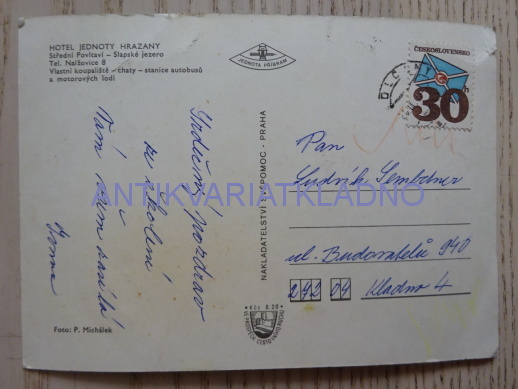 HOTEL JEDNOTY HRAZANY
Střední Povltaví - Slapské jezero
Tel. Nalžovice 8
Vlastní koupaliště - chaty - stanice autobusů
a motorových lodí
JEDNOTA PŘÍBRAM
ČESKOSLOVENSKO
30h
Srdečný pozdrav
ze školení
Vám všem zasílá
Foto: P. Michálek
NAKLADATELSTVÍ SVÉPOMOC - PRAHA
Kčs 0,20
Pan
Ludvík
ul. Budovatelů 940
272 04 Kladno 4
ANTIKVARIATKLADNO